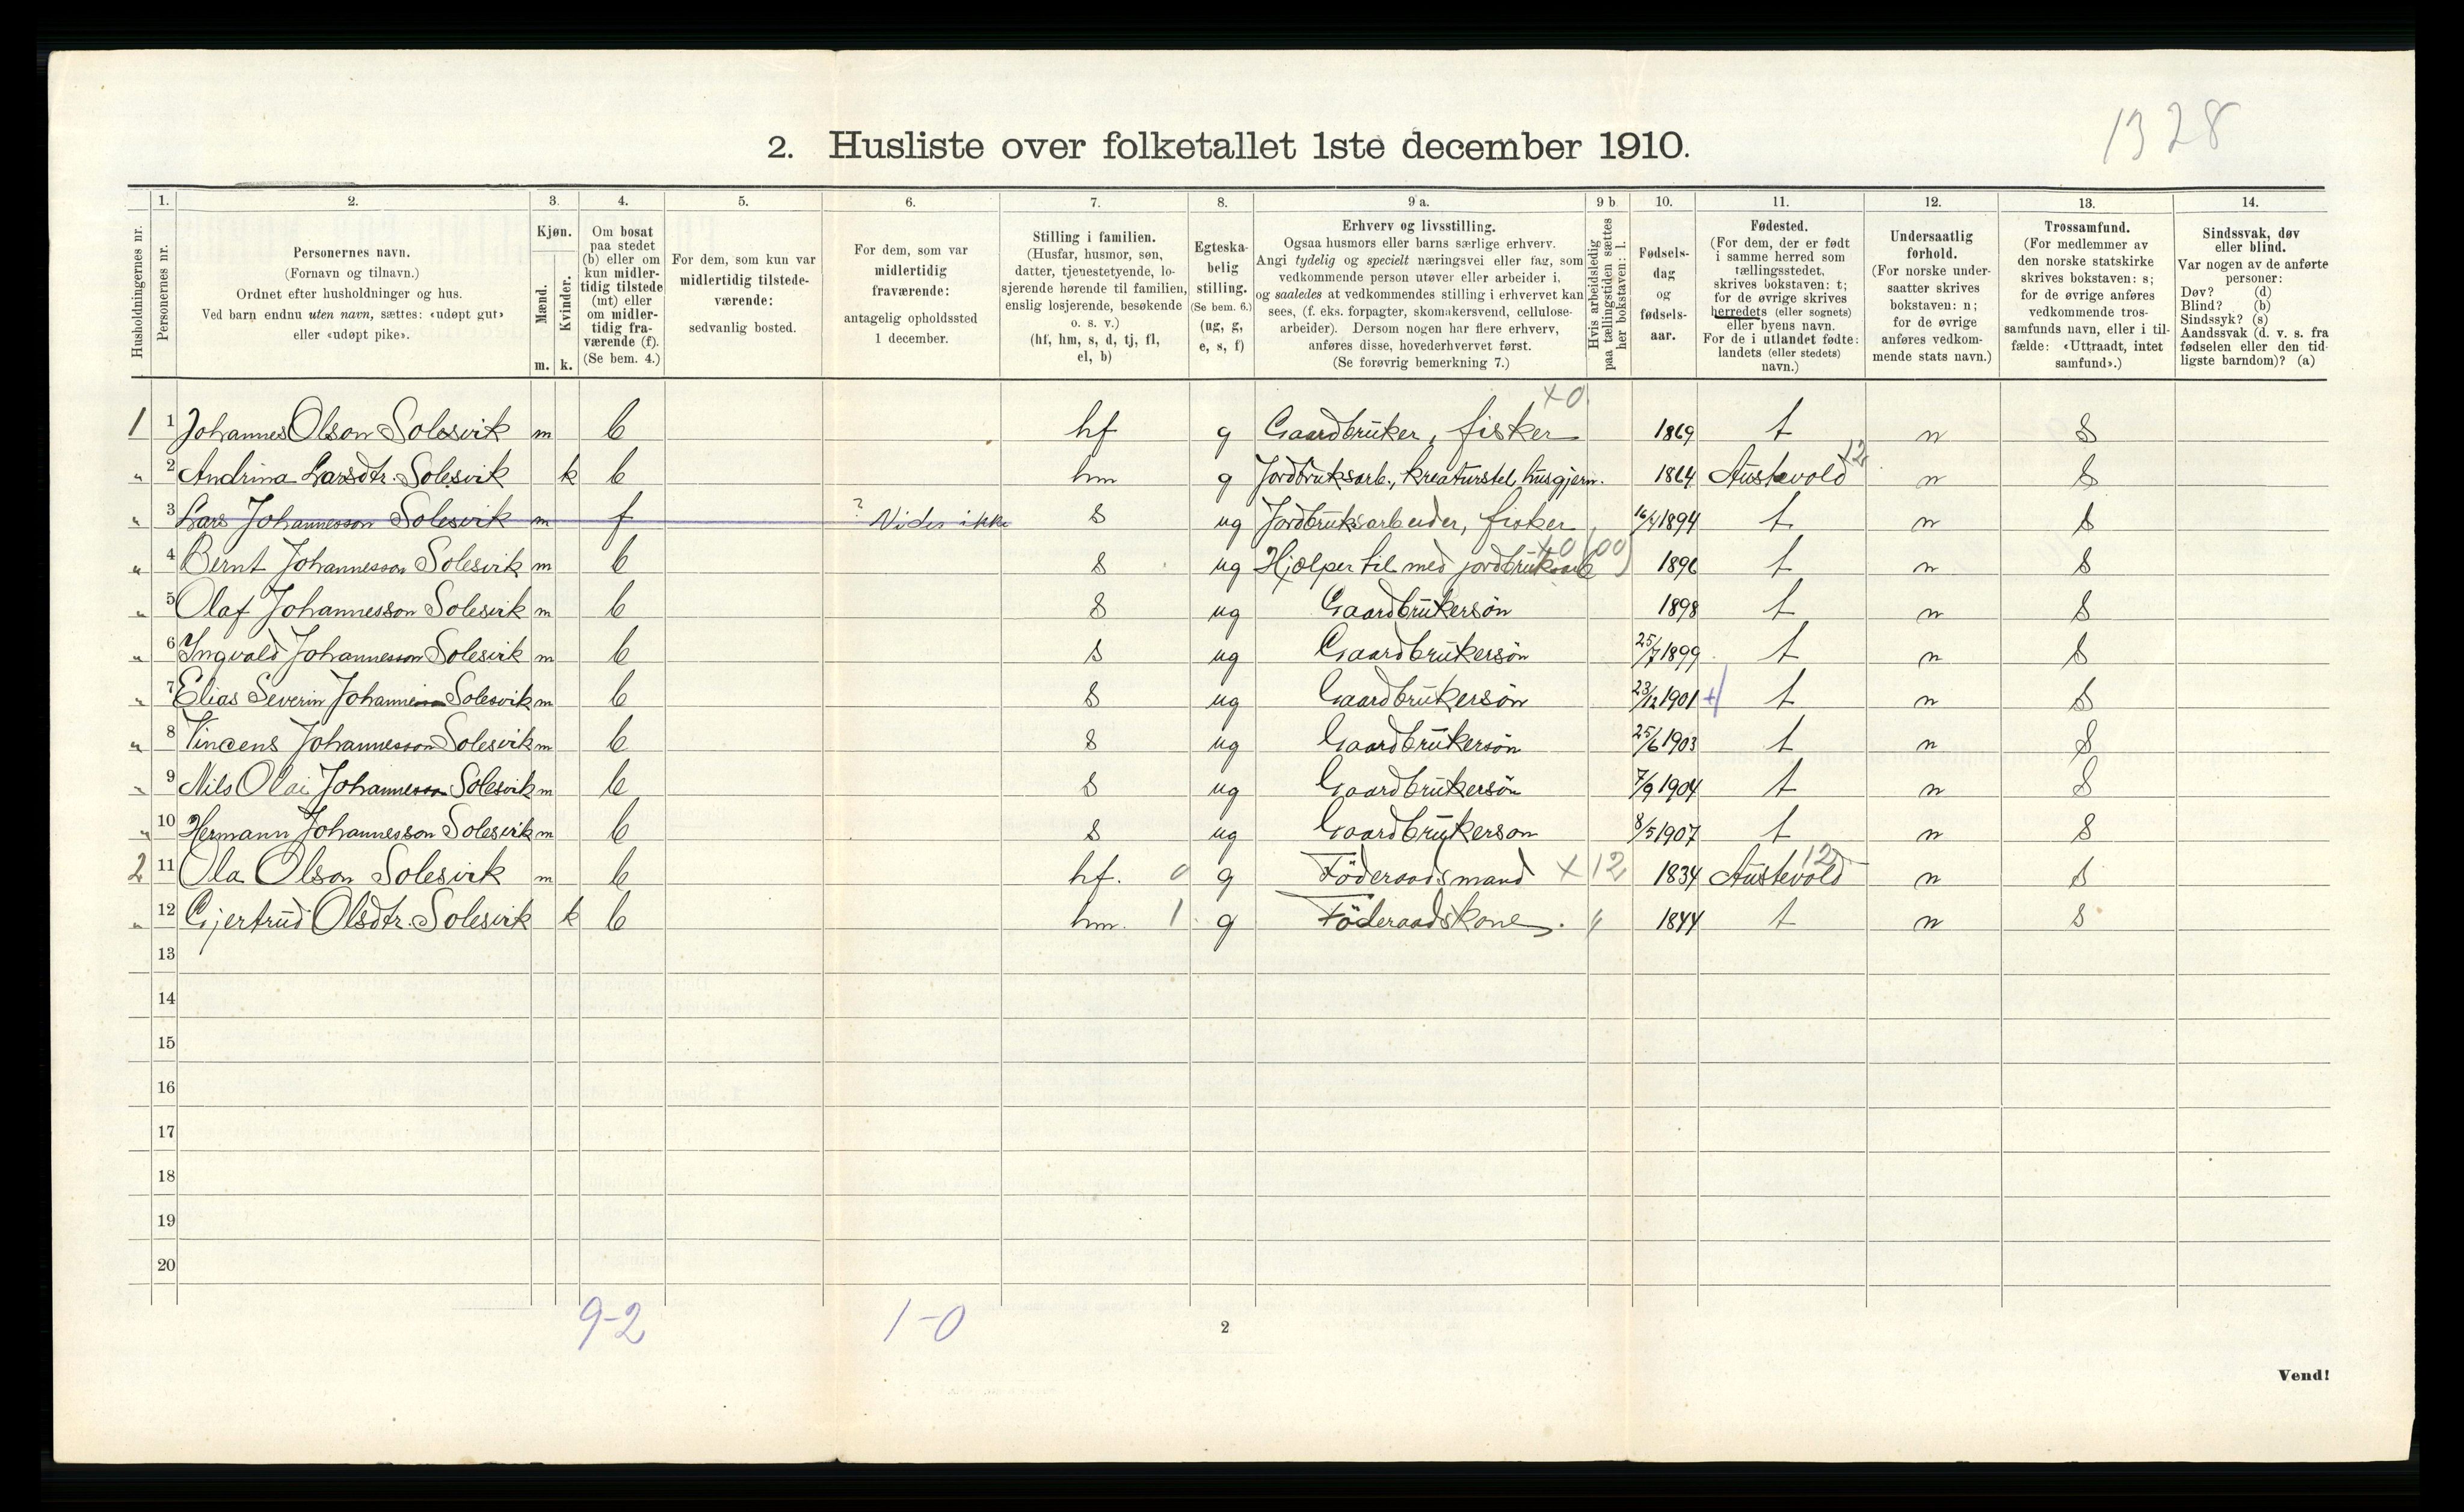 1328
2. Husliste over folketallet 1ste december 1910.
Husholdningernes nr.
1. Personernes nr.
2. Personernes navn.
(Fornavn og tilnavn.)
Ordnet efter husholdninger og hus.
Ved barn endnu uten navn, sættes: «udøpt gut»
eller «udøpt pike».
3. Kjøn.
Mænd. m.
Kvinder. k.
4. Om bosat
paa stedet
(b) eller om
kun midler-
tidig tilstede
(mt) eller
om midler-
tidig fra-
værende (f).
(Se bem. 4.)
5. For dem, som kun var
midlertidig tilstede-
værende:
sedvanlig bosted.
6. For dem, som var
midlertidig
fraværende:
antagelig opholdssted
1 december.
7. Stilling i familien.
(Husfar, husmor, søn,
datter, tjenestetyende, lo-
sjerende hørende til familien,
enslig losjerende, besøkende
o. s. v.)
(hf, hm, s, d, tj, fl,
el, b)
8. Egteska-
belig
stilling.
(Se bem. 6.)
(ug, g,
e, s, f)
9 a. Erhverv og livsstilling.
Ogsaa husmors eller barns særlige erhverv.
Angi tydelig og specielt næringsvei eller fag, som
vedkommende person utøver eller arbeider i,
og saaledes at vedkommendes stilling i erhvervet kan
sees, (f. eks. forpagter, skomakersvend, cellulose-
arbeider). Dersom nogen har flere erhverv,
anføres disse, hovederhvervet først.
(Se forøvrig bemerkning 7.)
9 b. Hvis arbeidsledig
paa tællingstiden sættes
her bokstaven: l.
10. Fødsels-
dag
og
fødsels-
aar.
11. Fødested.
(For dem, der er født
i samme herred som
tællingsstedet,
skrives bokstaven: t;
for de øvrige skrives
herredets (eller sognets)
eller byens navn.
For de i utlandet fødte:
landets (eller stedets)
navn.)
12. Undersaatlig
forhold.
(For norske under-
saatter skrives
bokstaven: n;
for de øvrige
anføres vedkom-
mende stats navn.)
13. Trossamfund.
(For medlemmer av
den norske statskirke
skrives bokstaven: s;
for de øvrige anføres
vedkommende tros-
samfunds navn, eller i til-
fælde: «Uttraadt, intet
samfund».)
14. Sindssvak, døv
eller blind.
Var nogen av de anførte
personer:
Døv? (d)
Blind? (b)
Sindssyk? (s)
Aandssvak (d. v. s. fra
fødselen eller den tid-
ligste barndom)? (a)
1 1 Johannes Olson Solesvik m b hf g Gaardbruker, fisker x0 1869 t n s
" 2 Andrina Larsdtr. Solesvik k b hm g Jordbruksarb., kreaturstel, husgjern. 1864 Austevold 12 n s
" 3 Lars Johannesson Solesvik m f ? Vides ikke s ug Jordbruksarbeider, fisker 16/4 1894 t n s
" 4 Bernt Johannesson Solesvik m b s ug Hjælper til med jordbruksarb x0 (00) 1896 t n s
" 5 Olaf Johannesson Solesvik m b s ug Gaardbrukersøn 1898 t n s
" 6 Ingvald Johannesson Solesvik m b s ug Gaardbrukersøn 25/7 1899 t n s
" 7 Elias Severin Johannesson Solesvik m b s ug Gaardbrukersøn 23/12 1901 + t n s
" 8 Vincens Johannesson Solesvik m b s ug Gaardbrukersøn 25/6 1903 t n s
" 9 Nils Olai Johannesson Solesvik m b s ug Gaardbrukersøn 7/9 1904 t n s
" 10 Hermann Johannesson Solesvik m b s ug Gaardbrukerson 8/5 1907 t n s
2 11 Ola Olson Solesvik m b hf. 0 g Föderaadsmand x 12 1834 Austevold 12 n s
" 12 Gjertrud Olsdtr. Solesvik k b hm. 1 g Föderaadskone. " 1844 t n s
13
14
15
16
17
18
19
20
9-2 1-0
2
Vend!